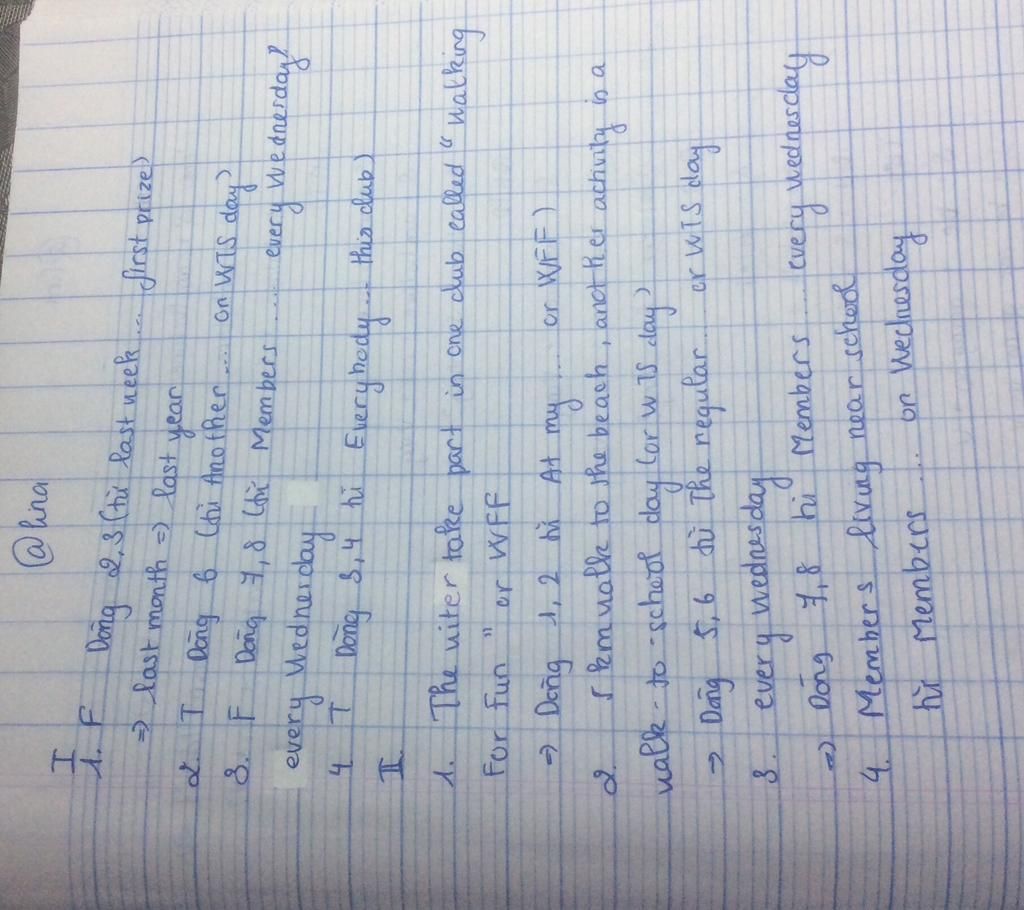 @lina
I
1. F Dòng 2,3 (từ last week .... first prize)
=> last month => last year
2. T Dòng 6 (từ Another .... on WTS day)
3. F Dòng 7, 8 (từ Members ..... every Wednesday)
every Wednesday
4 T Dòng 3, 4 từ Everybody... this club)
II.
1. The witer take part in one club called "Walking
For Fun" or WFF
=> Dòng 1, 2 từ At my ..... or WFF)
2. 5 km walk to the beach, another activity is a
walk-to-school day (or WTS day)
-> Dòng 5, 6 từ The regular.... or WTS day
3. every Wednesday
=> Dòng 7, 8 từ Members .... every Wednesday
4. Members living near school
từ Members .... on Wednesday